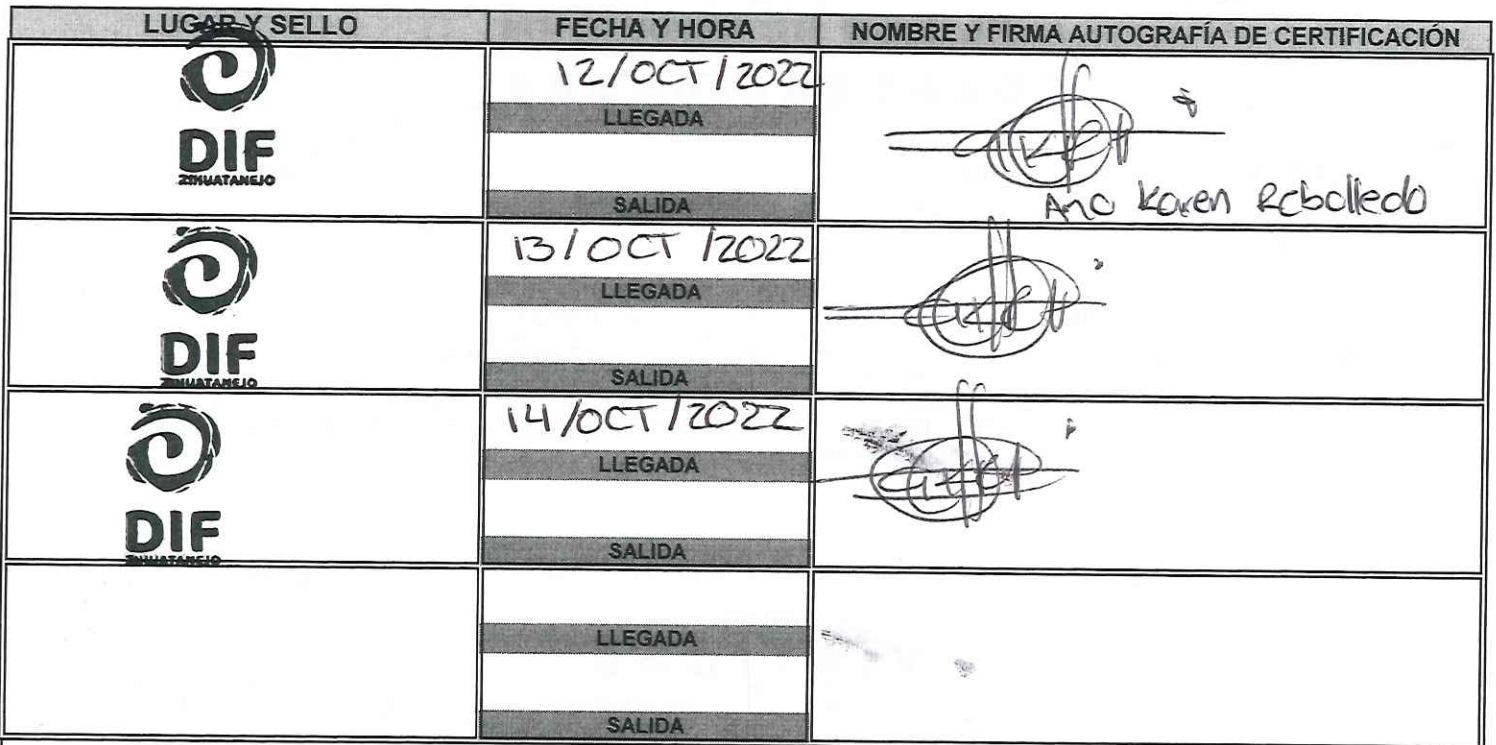 LUGAR Y SELLO FECHA Y HORA NOMBRE Y FIRMA AUTOGRAFÍA DE CERTIFICACIÓN
DIF
ZIHUATANEJO
12/OCT/2022
LLEGADA
SALIDA
Ana Karen Rebolledo
DIF
ZIHUATANEJO
13/OCT/2022
LLEGADA
SALIDA
DIF
ZIHUATANEJO
14/OCT/2022
LLEGADA
SALIDA
LLEGADA
SALIDA